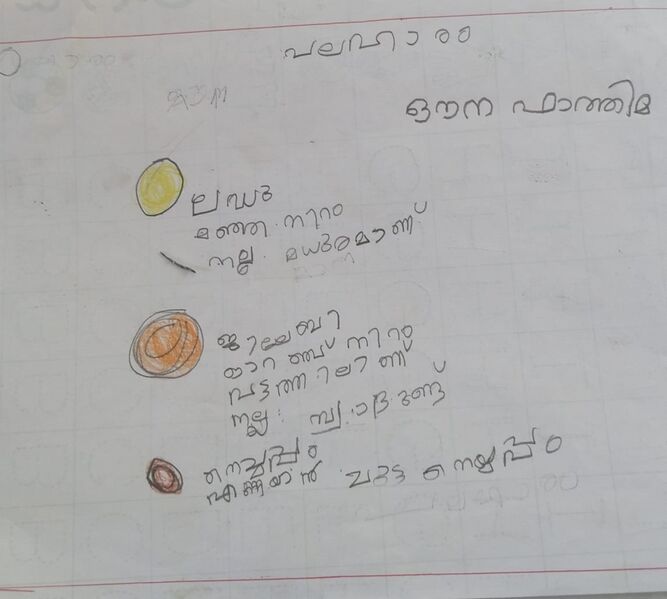 പലഹാരം
ഔന ഫാത്തിമ
ലഡു
മഞ്ഞ നിറം
നല്ല മധുരമാണ്
ജിലേബി
ഓറഞ്ച് നിറം
വട്ടത്തിലാണ്
നല്ല സ്വാദുണ്ട്
നെയ്യപ്പം
ചുട്ട നെയ്യപ്പം